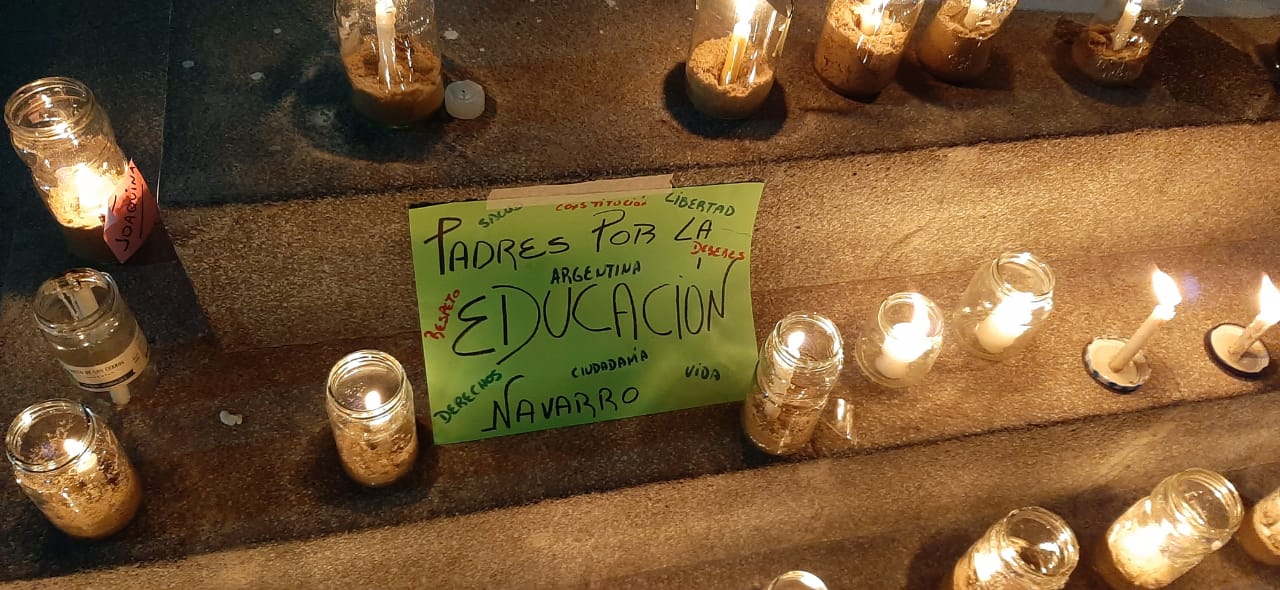 SALUD CONSTITUCIÓN LIBERTAD
PADRES POR LA
DEBERES
ARGENTINA
RESPETO
EDUCACIÓN
CIUDADANÍA
DERECHOS
VIDA
NAVARRO
JOAQUINA